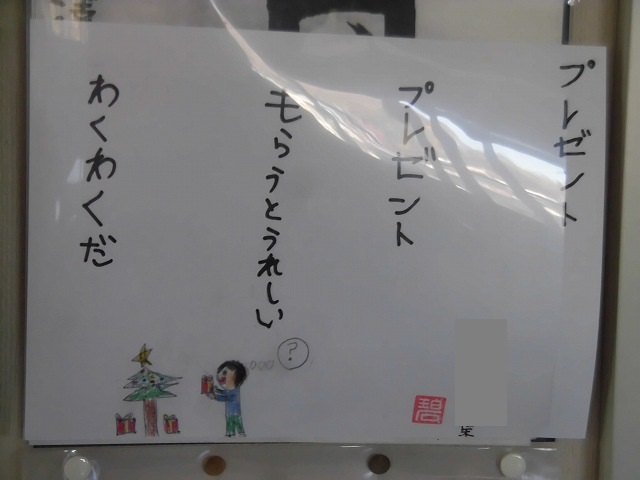 プレゼント
プレゼント
もらうとうれしい
わくわくだ
?
碧